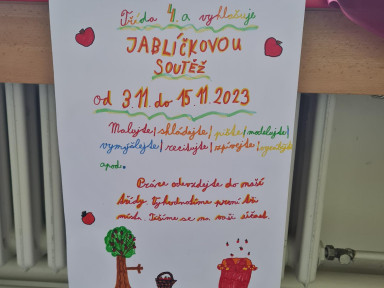 Třída 4.a vyhlašuje
JABLÍČKOVOU
SOUTĚŽ
od 3.11. do 15.11.2023
Malujte/skládejte/pište/modelujte/
vymýšlejte/recitujte/zpívejte/
apod.
Práce odevzdejte do naší
třídy. Vyhodnotíme první tři
místa. Těšíme se na vaši účast.